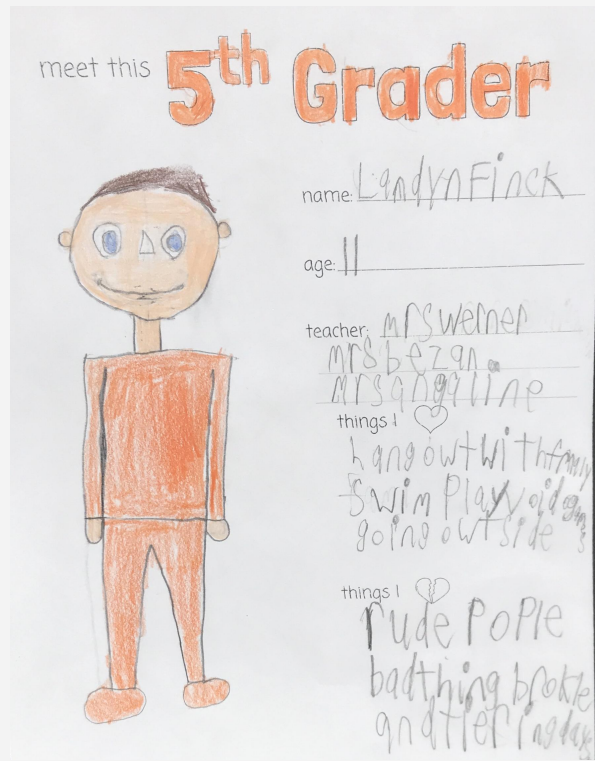 meet this 5th Grader
name: Landyn Finck
age: 11
teacher: mrs werner
mrs bezan
mrs angaline
things I
hang owt with family
Swim Play void games
going owtside
things I
rude Pople
bad thing brokle
and tiering days